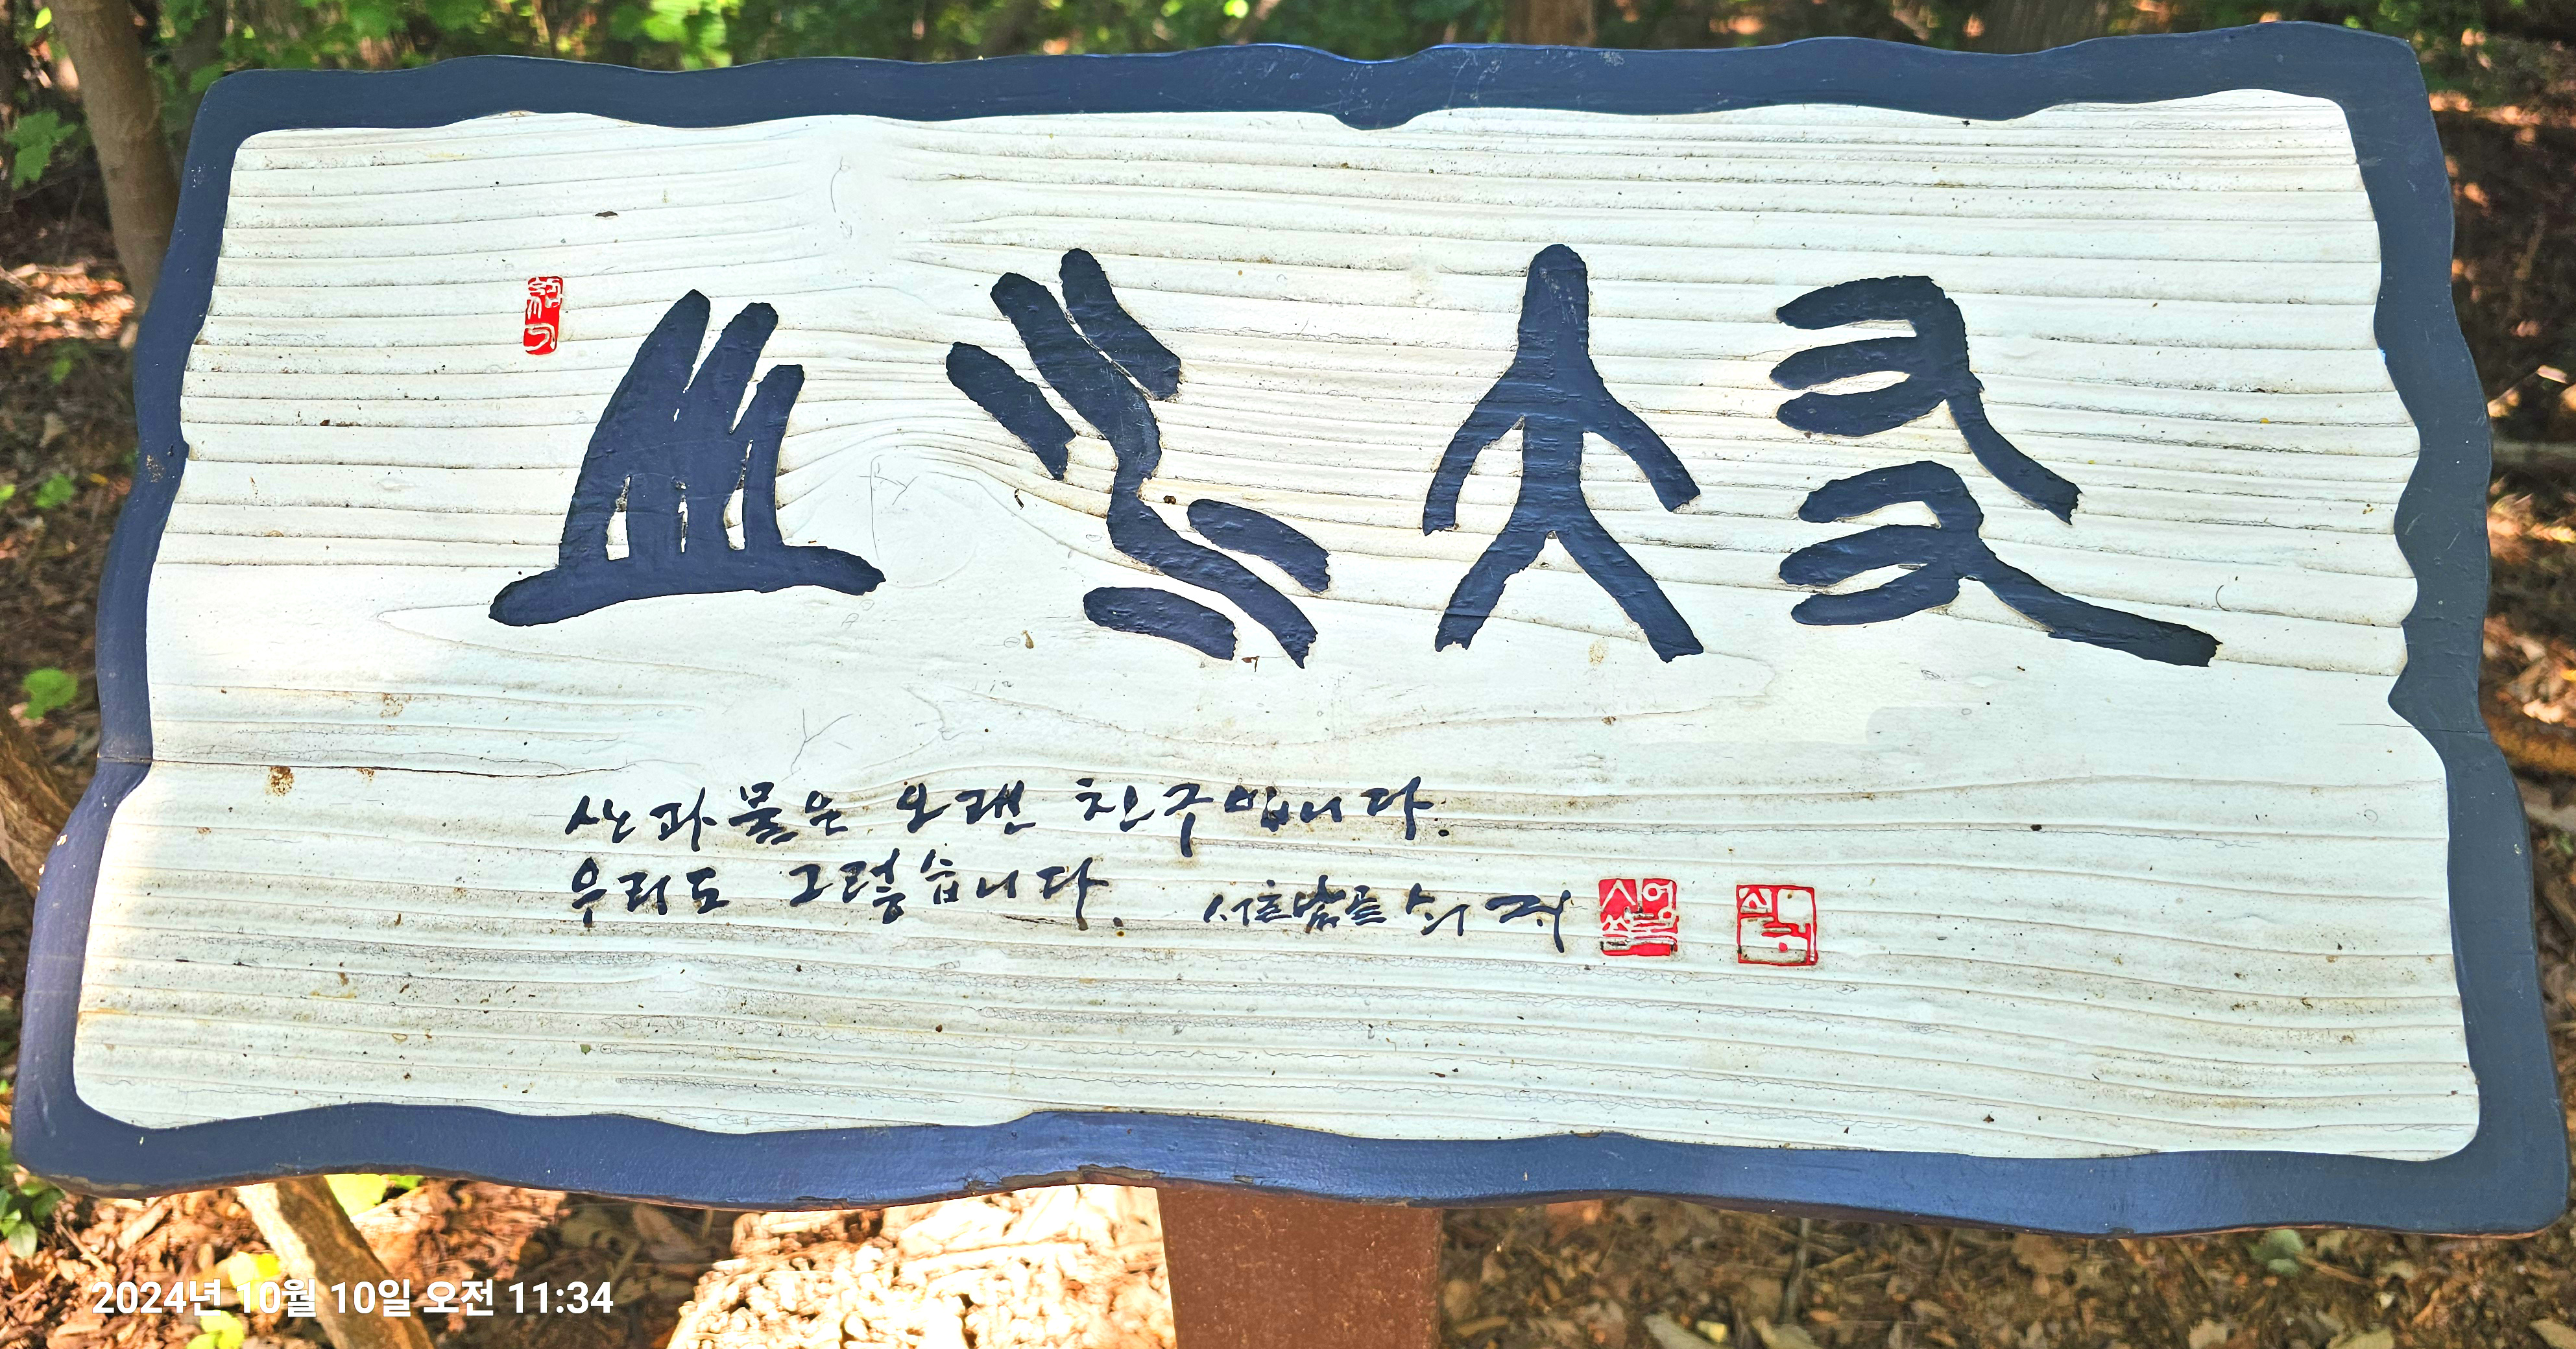 山水大友
산과 물은 오랜 친구입니다.
우리도 그렇습니다.
2024년 10월 10일 오전 11:34